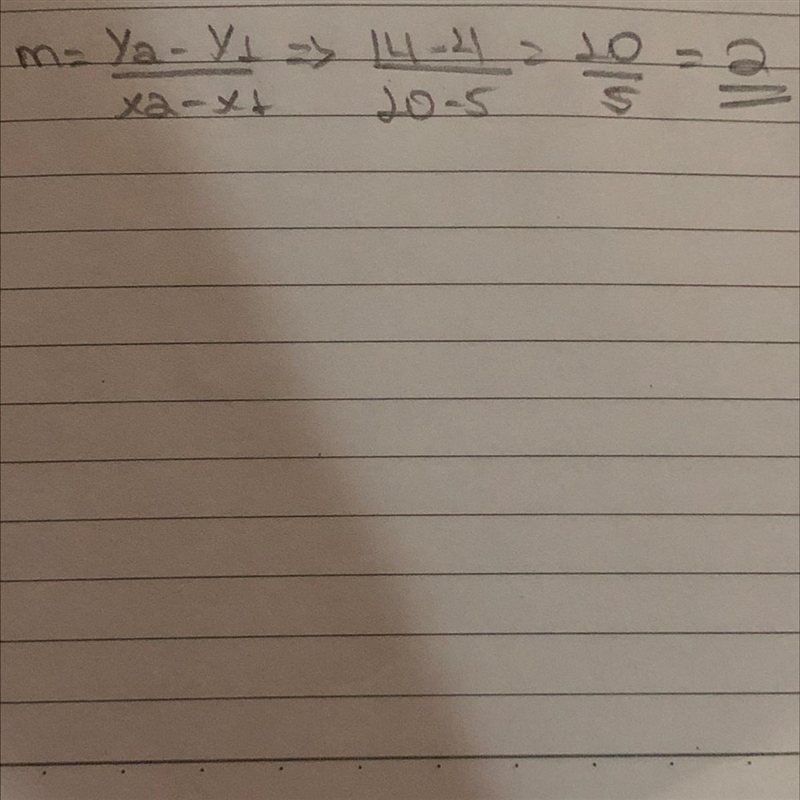 m = y2 - y1 / x2 - x1 => 14 - 4 / 10 - 5 = 10 / 5 = 2